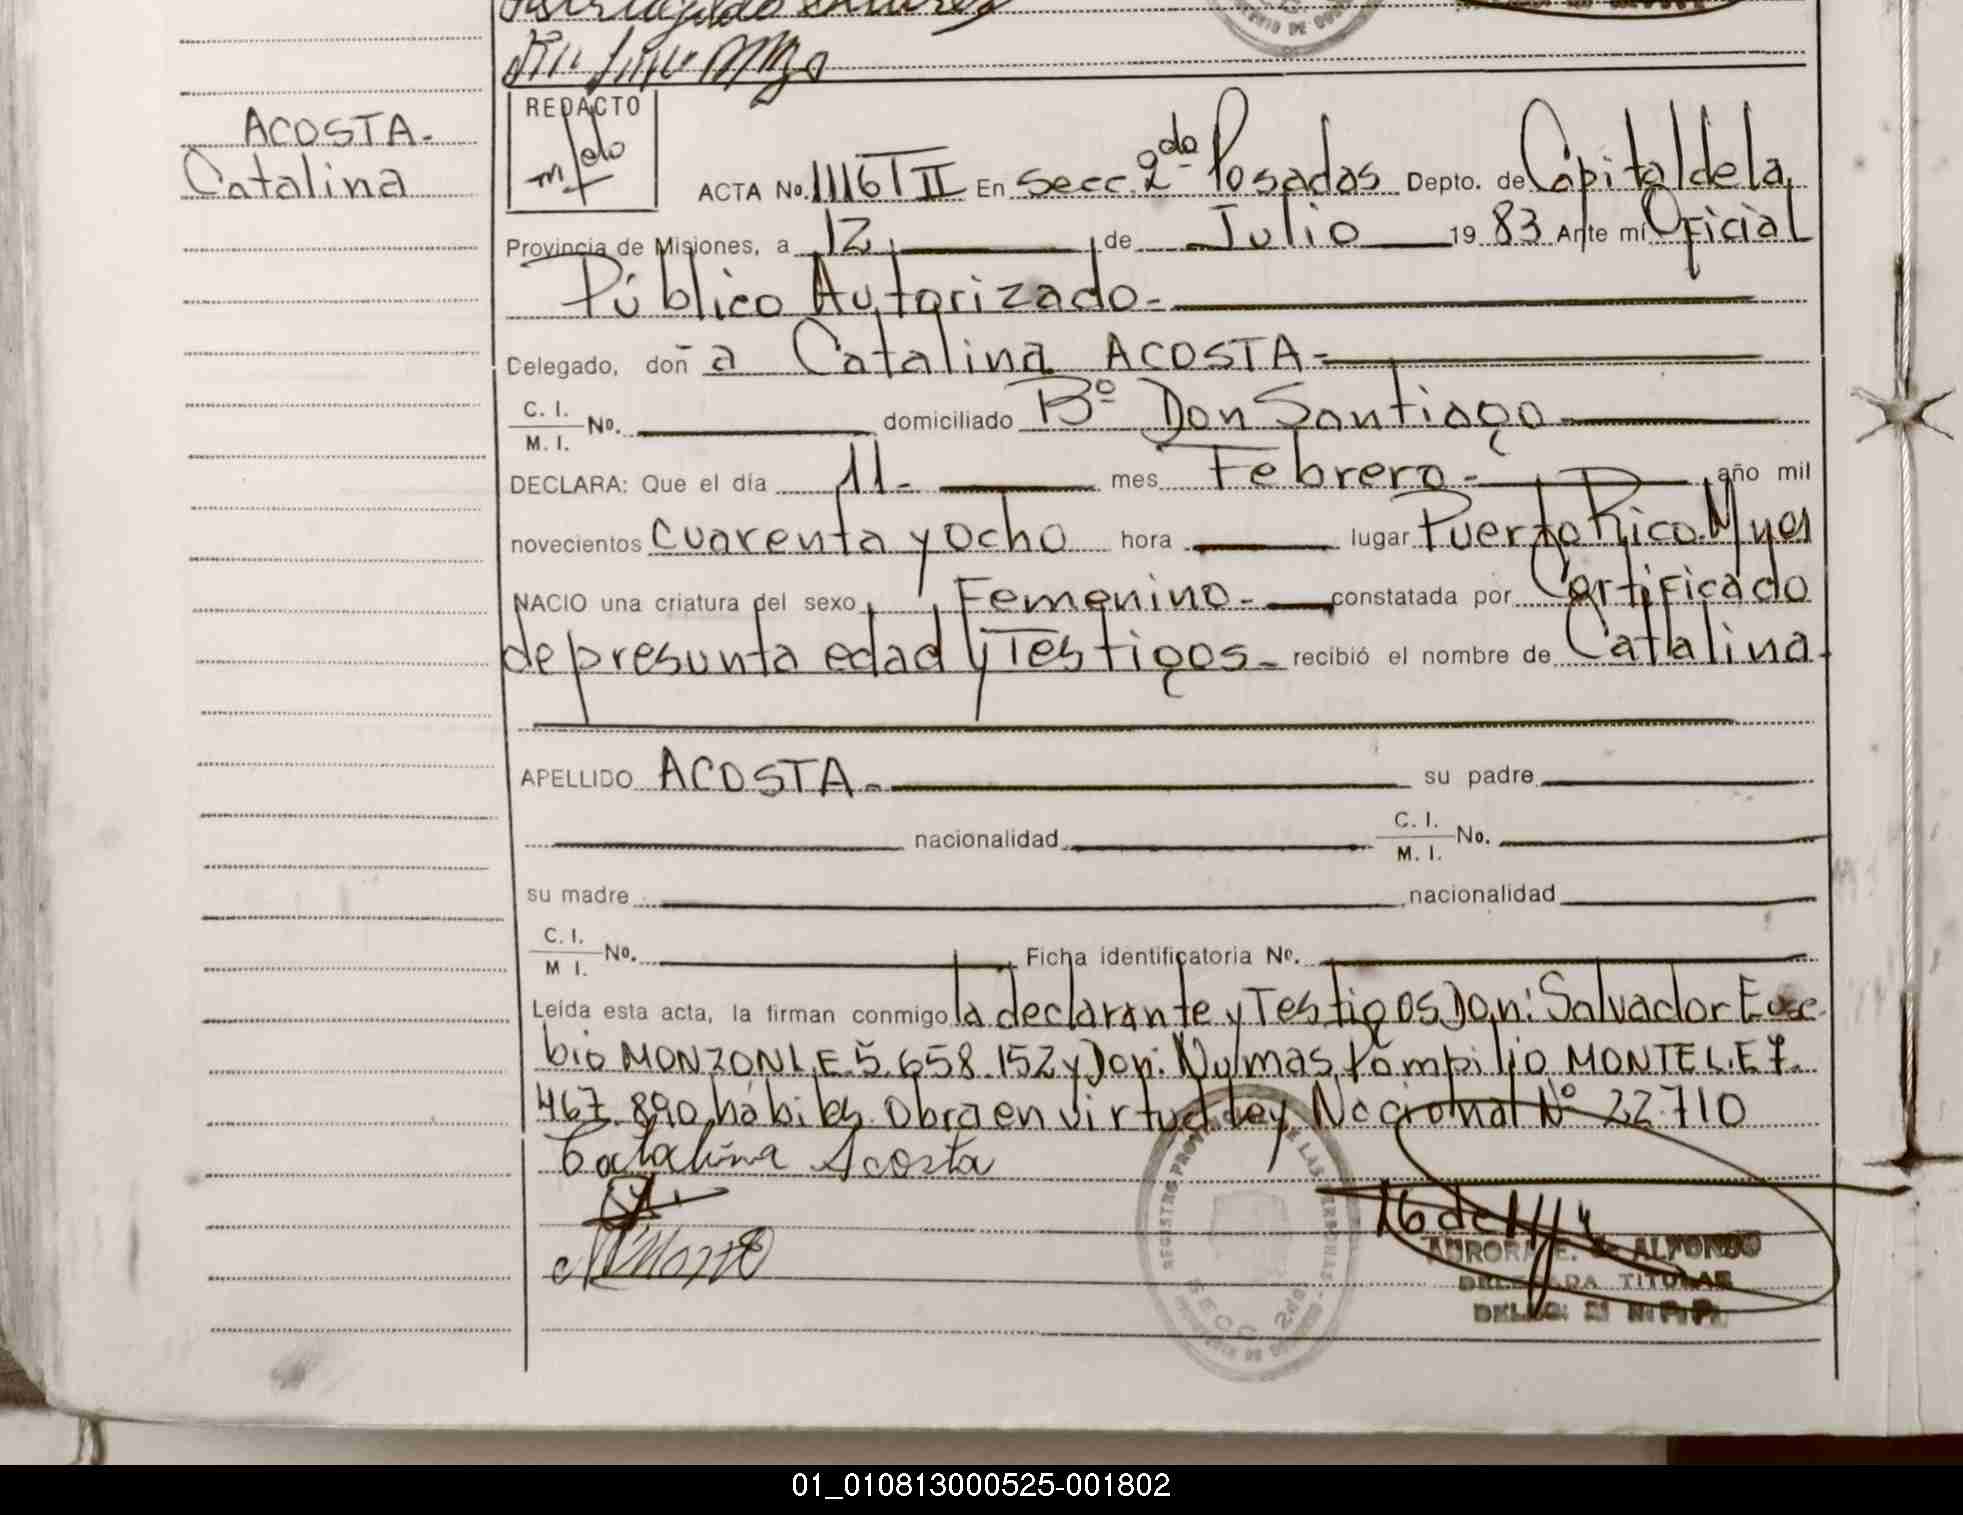 REDACTO
ACOSTA-
Catalina
ACTA No. 1116 T II En Secc. 2do Posadas Depto. de Capital de la
Provincia de Misiones, a 12 de Julio 19 83 Ante mi Oficial
Público Autorizado-
Celegado, doñ a Catalina ACOSTA-
C. I. / M. I. No. domiciliado Bº Don Santiago
DECLARA: Que el día 11- mes Febrero- año mil
novecientos cuarenta y ocho hora lugar Puerto Rico. Mnes
NACIO una criatura del sexo Femenino- constatada por Certificado
de presunta edad y Testigos- recibió el nombre de Catalina-
APELLIDO ACOSTA- su padre
nacionalidad C. I. / M. I. No.
su madre nacionalidad
C. I. / M I. No. Ficha identificatoria No.
Leída esta acta, la firman conmigo la declarante y Testigos Don: Salvador Euse
bio MONZON L.E. 5.658.152 y Don: Numas Pompilio MONTE L.E 7.
467.890 hábiles. Obra en virtud ley Nacional Nº 22.710
Catalina Acosta
SECC. 2da
AURORA E. ALFONSO
DELEGADA TITULAR
01_010813000525-001802